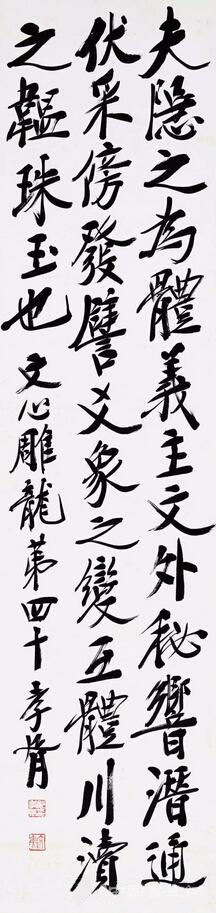 夫隱之為體義主文外秘響潛通
伏采傍發譬爻象之變互體川瀆
之韞珠玉也 文心雕龍第四十 孝胥